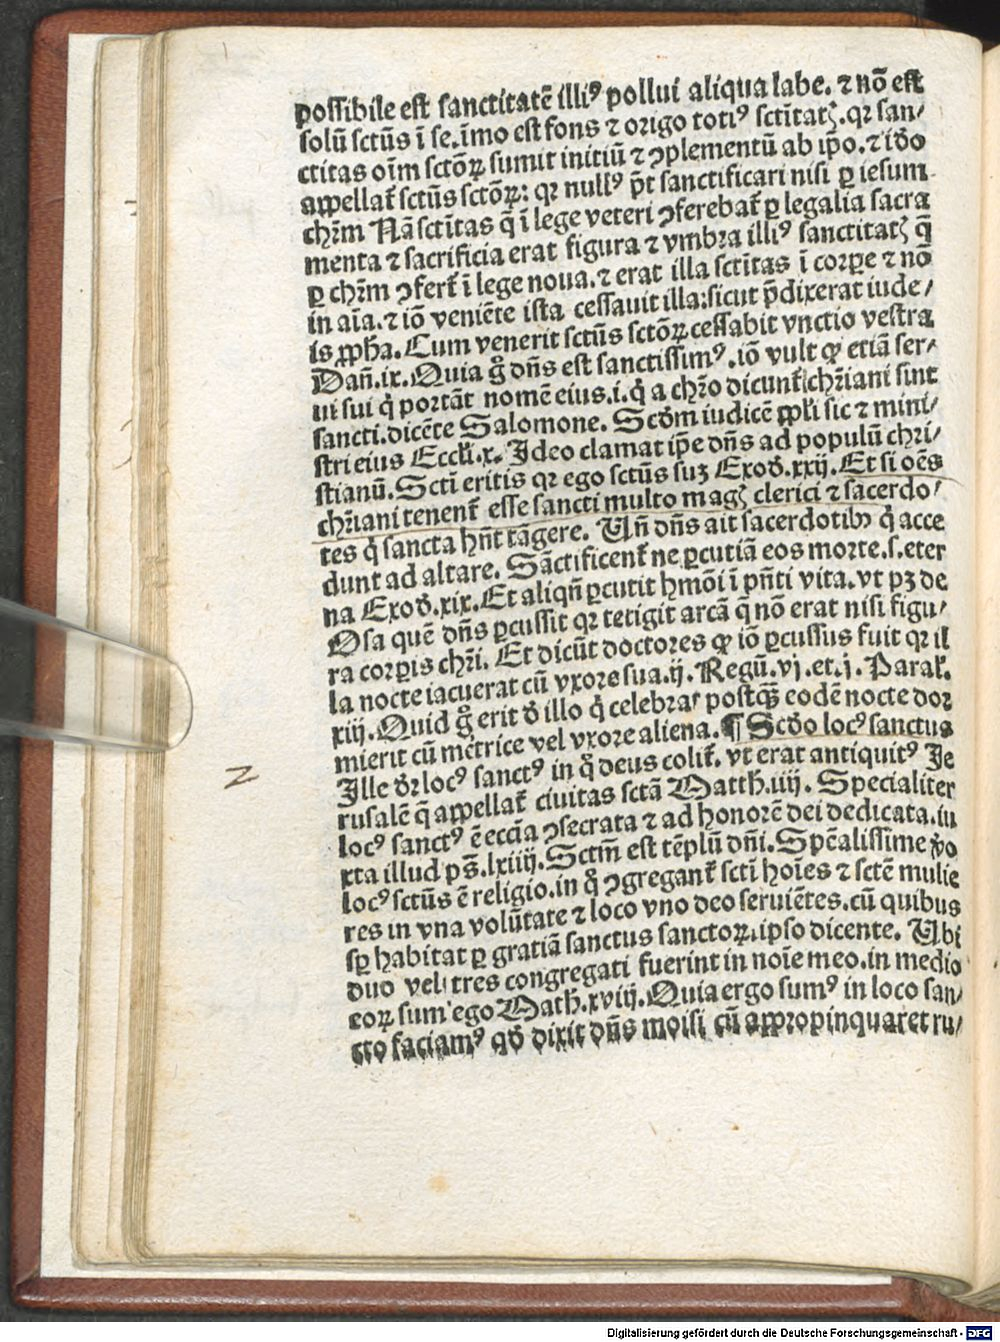 possibile est sanctitatē illiꝰ pollui aliqua labe. ⁊ nō est
solū sctūs ī se. īmo est fons ⁊ origo totiꝰ sctītatꝭ. qr san/
ctitas oīm sctōꝝ sumit initiū ⁊ ↄplementū ab ip̄o. ⁊ iđo
appellat̄ sctūs sctōꝝ: qr nullꝰ pt̄ sanctificari nisi ꝑ iesum
chr̄m Nā sctītas q̄ ī lege veteri ↄferebat̄ ꝑ legalia sacra
menta ⁊ sacrificia erat figura ⁊ vmbra illiꝰ sanctitatꝭ q̄
ꝑ chr̄m ↄfert̄ ī lege noua. ⁊ erat illa sctītas ī corꝑe ⁊ nō
in aīa. ⁊ iō veniēte ista cessauit illa: sicut p̄dixerat iude/
is ꝓph̄a. Cum venerit sctūs sctōꝝ cessabit vnctio vestra
Dan̄. ix. Quia g̊ dn̄s est sanctissimꝰ. iō vult ꝙ etiā ser/
ui sui q̇ portāt nomē eius. i. q̇ a chr̄o dicunt̄ chr̄iani sint
sancti. dicēte Salomone. Scđm iudicē ppl̄i sic ⁊ mini/
stri eius Eccl̄i. x. Ideo clamat ip̄e dn̄s ad populū chri/
stianū. Sctī eritis qr ego sctūs suꝫ Exođ. xxij. Et si oēs
chr̄iani tenent̄ esse sancti multo magꝭ clerici ⁊ sacerdo/
tes q̇ sancta hn̄t tāgere. Vn̄ dn̄s ait sacerdotibꝰ q̇ acce
dunt ad altare. Sāctificent̄ ne ꝑcutiā eos morte. s. eter
na Exođ. xix. Et aliqn̄ ꝑcutit hmōi ī pn̄ti vita. vt pꝫ de
Osa quē dn̄s ꝑcussit qr tetigit arcā q̄ nō erat nisi figu/
ra corꝑis chr̄i. Et dicūt doctores ꝙ iō ꝑcussus fuit qr il
la nocte iacuerat cū vxore sua. ij. Regū. vj. et. j. Paral̄.
xiij. Quid g̊ erit đ illo q̇ celebrat postqꝫ eodē nocte dor
mierit cū mētrice vel vxore aliena. ¶ Scđo locꝰ sanctus
Ille đr locꝰ sanctꝰ in q̊ deus colit̄. vt erat antiquitꝰ Je
rusalē q̄ appellat̄ ciuitas sctā Matth. iiij. Specialiter
locꝰ sanctꝰ ē eccīa ↄsecrata ⁊ ad honorē dei dedicata. iu
xta illud ps̄. lxiiij. Sctm̄ est tēplū dn̄i. Spēalissime ꝟo
locꝰ sctūs ē religio. in q̊ ↄgregant̄ sctī hoīes ⁊ sctē mulie
res in vna volūtate ⁊ loco vno deo seruiētes. cū quibus
sꝑ habitat ꝑ gratiā sanctus sanctoꝝ. ipso dicente. Vbi
duo vel tres congregati fuerint in noīe meo. in medio
eoꝝ sum ego Math. xviij. Quia ergo sumꝰ in loco san/
cto faciamꝰ qđ dixit dn̄s moisi cū appropinquaret ru/
2
Digitalisierung gefördert durch die Deutsche Forschungsgemeinschaft - DFG